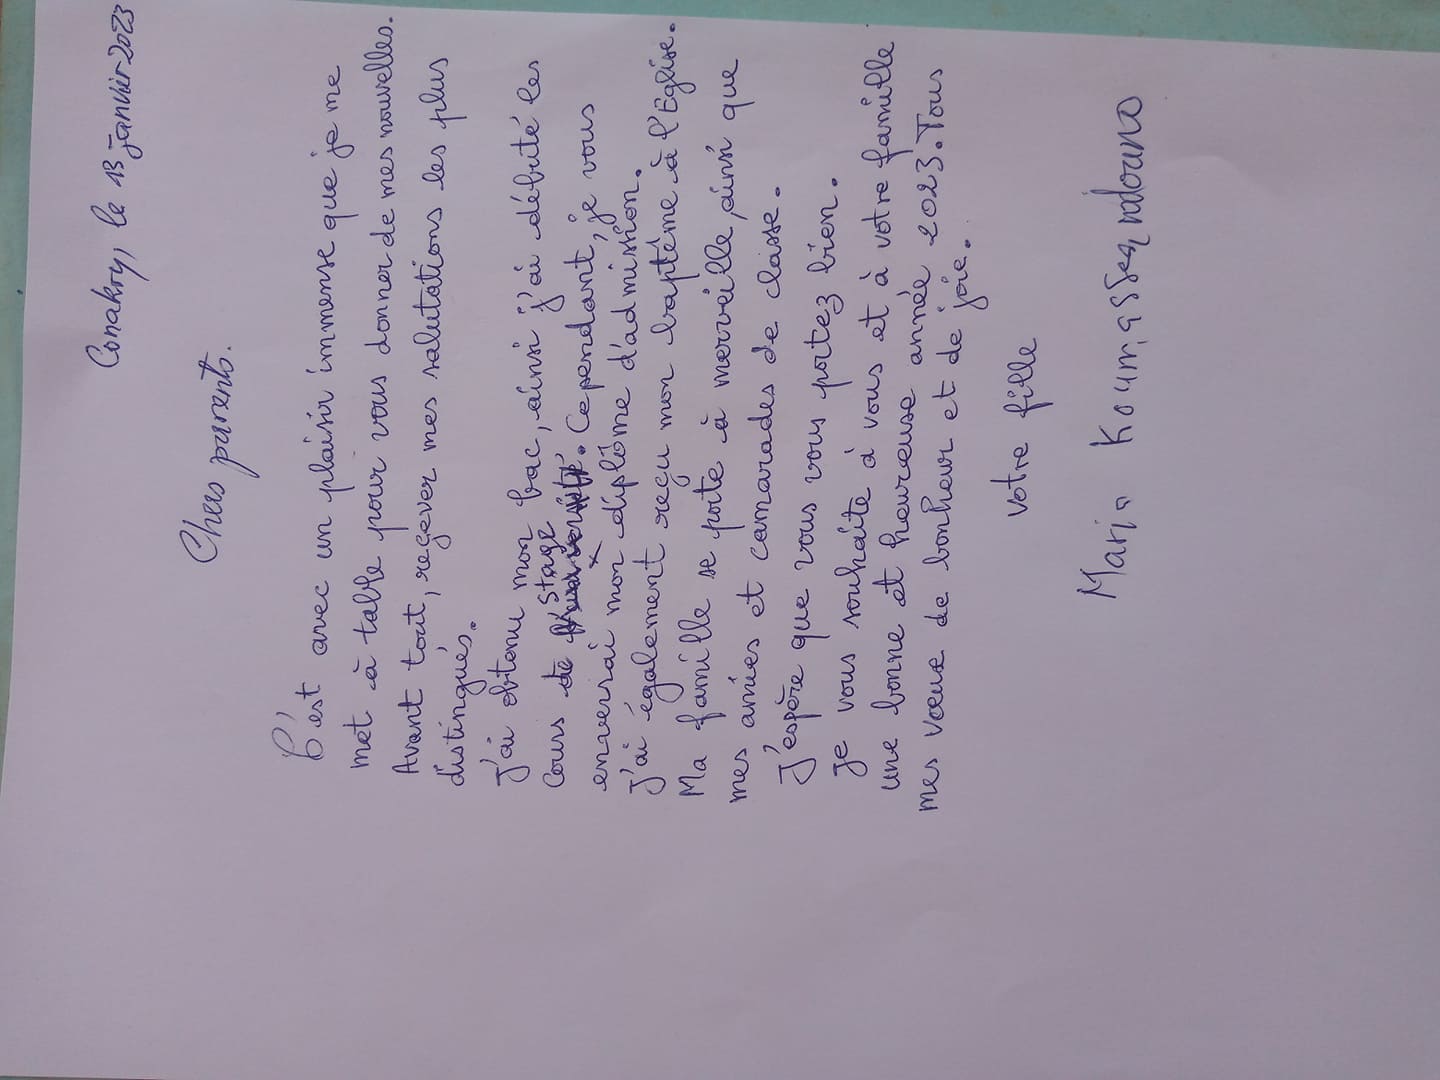 Conakry, le 13 janvier 2023
Chers parents.
C'est avec un plaisir immense que je me
met à table pour vous donner de mes nouvelles.
Avant tout, reçever mes salutations les plus
distingués.
J'ai obtenu mon bac, ainsi j'ai débuté les
Cours de stage. Cependant, je vous
enverrai mon diplôme d'admission.
J'ai également reçu mon baptême à l'Eglise.
Ma famille se porte à merveille, ainsi que
mes amies et camarades de classe.
J'espère que vous vous portez bien.
Je vous souhaite à vous et à votre famille
une bonne et heureuse année 2023. Tous
mes vœux de bonheur et de joie.
Votre fille
Maria Koumassadouno